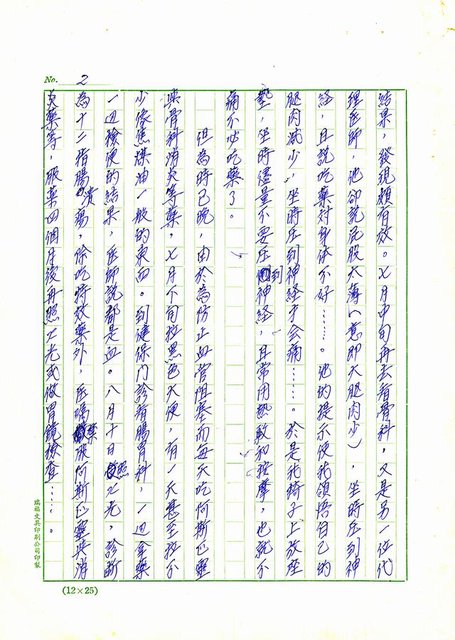 No. 2
結果，發現頗有效。七月中旬再去看骨科，又是另一位代
理医師，他卻說屁股太薄（意即大腿肉少），坐時压到神
経，且說吃葯对身体不好……。他的提示使我領悟自己的
腿肉減少，坐時压到神経才会痛……。於是我椅子上放座
墊，坐時儘量不要压到神経，且常用熱敷和按摩，也就不
痛不必吃葯了。
但為時已晚，由於為防止血管阻塞而每天吃阿斯匹靈
與骨科消炎等葯，七月下旬拉黑色大便，有一天甚至拉不
少像焦煤油一般的東西。到健保門診看腸胃科，一週拿葯
一週檢便的結果，医師說都是血。八月十日照X光，診斷
為十二指腸潰瘍，除吃特效葯外，医囑禁服阿斯匹靈與消
炎葯等，服葯四個月後再照X光或做胃鏡檢查……。
瑞裕文具印刷公司印製
(12×25)